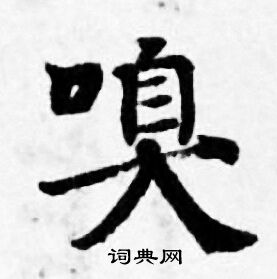 嗅
词典网